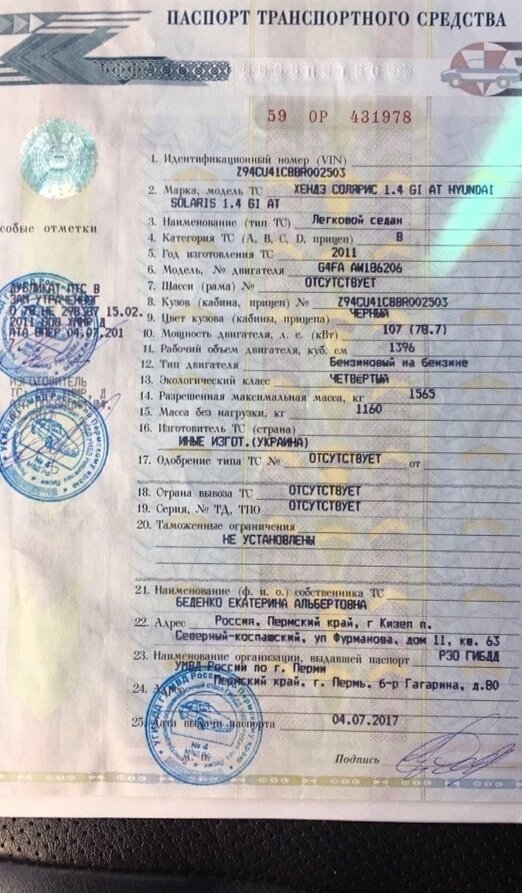 ПАСПОРТ ТРАНСПОРТНОГО СРЕДСТВА
59 ОР 431978
1. Идентификационный номер (VIN)
Z94CU41CBBR002503
2. Марка, модель ТС ХЕНДЭ СОЛЯРИС 1.4 GI AT HYUNDAI
SOLARIS 1.4 GI AT
3. Наименование (тип ТС) Легковой седан
4. Категория ТС (A, B, C, D, прицеп) B
5. Год изготовления ТС 2011
6. Модель, № двигателя G4FA AW186206
7. Шасси (рама) № ОТСУТСТВУЕТ
8. Кузов (кабина, прицеп) № Z94CU41CBBR002503
9. Цвет кузова (кабины, прицепа) ЧЕРНЫЙ
10. Мощность двигателя, л. с. (кВт) 107 (78.7)
11. Рабочий объем двигателя, куб. см 1396
12. Тип двигателя Бензиновый на бензине
13. Экологический класс ЧЕТВЕРТЫЙ
14. Разрешенная максимальная масса, кг 1565
15. Масса без нагрузки, кг 1160
16. Изготовитель ТС (страна)
ИНЫЕ ИЗГОТ.(УКРАИНА)
17. Одобрение типа ТС № ОТСУТСТВУЕТ от
18. Страна вывоза ТС ОТСУТСТВУЕТ
19. Серия, № ТД, ТПО ОТСУТСТВУЕТ
20. Таможенные ограничения
НЕ УСТАНОВЛЕНЫ
21. Наименование (ф. и. о.) собственника ТС
БЕДЕНКО ЕКАТЕРИНА АЛЬБЕРТОВНА
22. Адрес Россия, Пермский край, г Кизел п.
Северный-коспашский, ул Фурманова, дом 11, кв. 63
23. Наименование организации, выдавшей паспорт РЭО ГИБДД
УМВД России по г. Перми
24. Адрес Пермский край, г. Пермь, б-р Гагарина, д.80
25. Дата выдачи паспорта 04.07.2017
М. П. Подпись
собые отметки
ДУБЛИКАТ ПТС В
ЗАМ УТРАЧЕННОГО
15.02.
2011
04.07.201
ИЗГОТОВИТЕЛЬ
№ 4